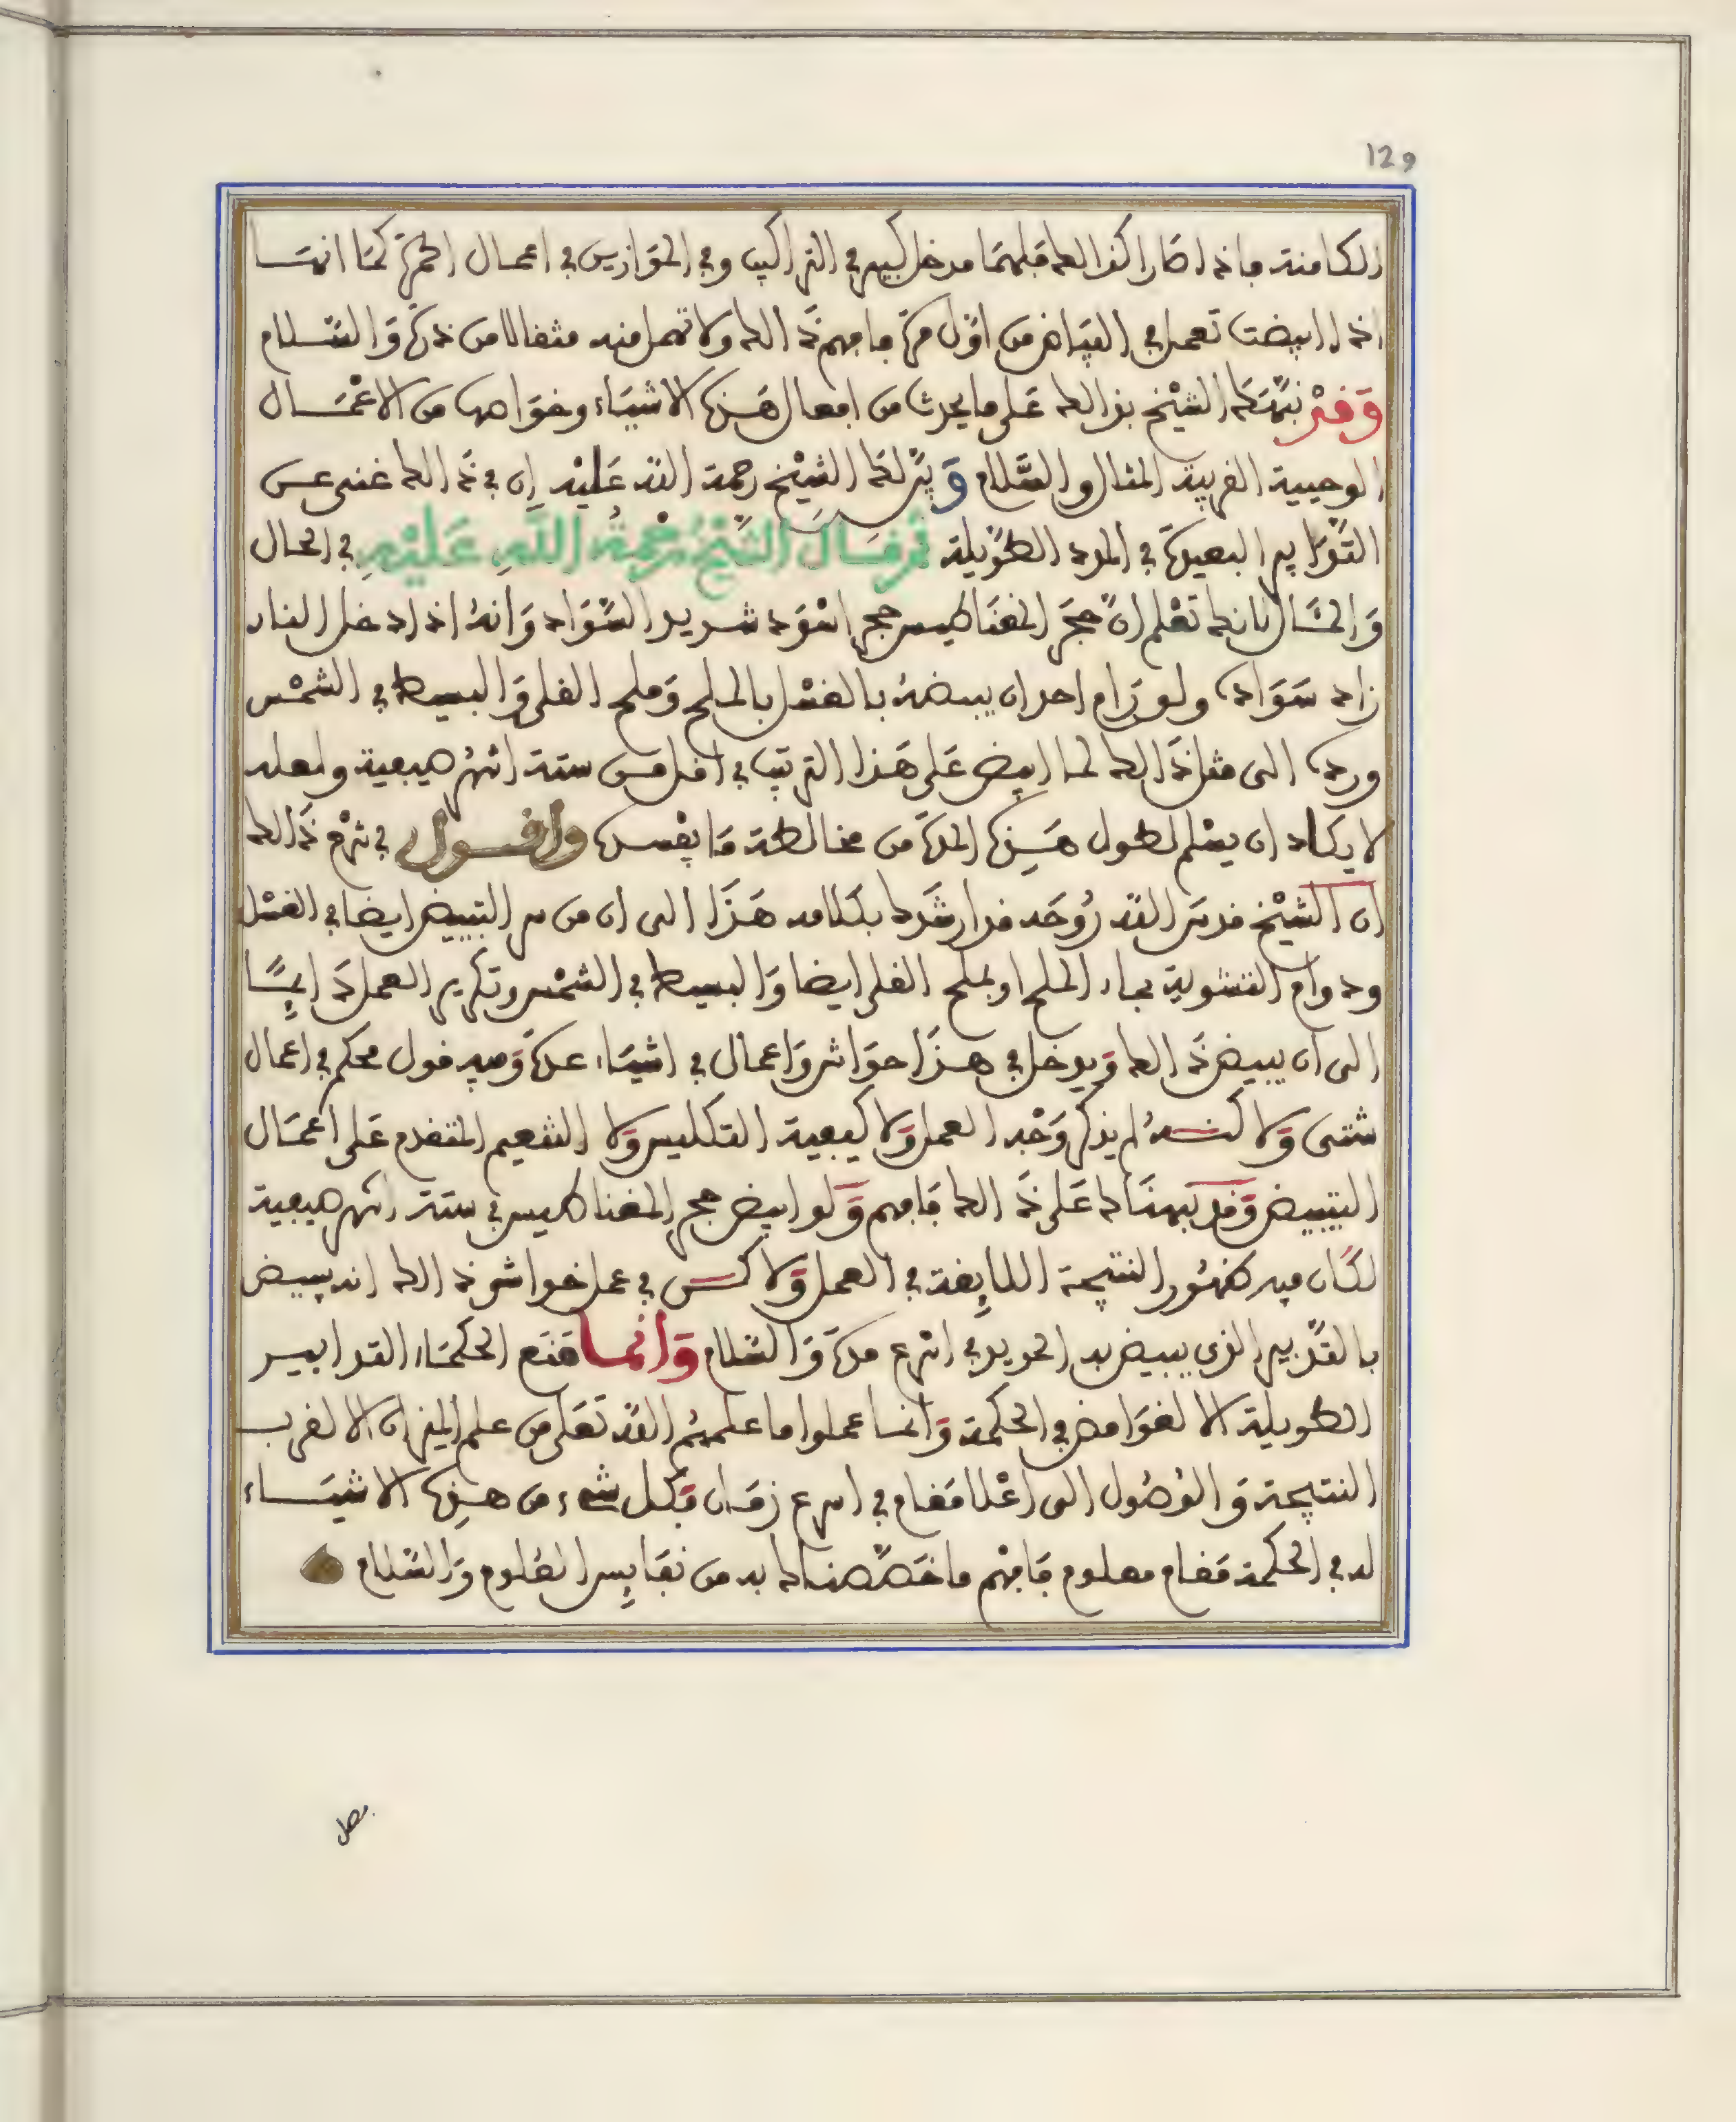 129
الكامنة فاذا صارا كذلك فلهما مدخل كبير في التراكيب وفي الموازين في اعمال الحمرة كما انها
اذا ابيضت تعمل في البياض من اول مرة فافهم ذلك ولا تهمل منه مثقالا من ذرة والسلام
وقد نبهك الشيخ بذلك على ما يحدث من افعال هذه الاشياء وخواصها من الاعمال
الوحيية الغريبة المثال والسلام و الشيخ رحمة الله عليه ان في ذلك غنى عن
التدابير البعيدة في المدد الطويلة ثم قال الشيخ رحمة الله عليه في الحال
والمثال فانك تعلم ان حجر المغناطيس حجر اسود شديد السواد وانه اذا دخل النار
زاد سواده ولو رام احد ان يبيضه بالغسل بالملح وملح القلي والبسيط في الشمس
ورده الى مثل ذلك لما ابيض على هذا الترتيب في اقل من ستة اشهر صيفية ولعله
لا يكاد ان يسلم لطول هذه المدة من مخالطة ما يفسده واقول في شرح ذلك
ان الشيخ قدس الله روحه قد ارشدك بكلامه هذا الى ان من سر التبييض ايضا في الغسل
ودوام التشوية بماء الملح او بملح القلي ايضا والبسيط في الشمس وتكرير العمل دايما
الى ان يبيض ذلك ويدخل في هذا حواش واعمال في اشياء عدة وفيه قول محكم في اعمال
شتى ولاكنه لم يذكر وجه العمل ولا كيفية التكليس ولا التشعيم المتقدم على اعمال
التبييض وقد نبهناك على ذلك فافهم ولو ابيض حجر المغناطيس في ستة اشهر صيفية
لكان فيه ظهور النتيجة اللايقة في العمل ولاكن في عمل خواش ذلك انه يبيض
بالتدبير الذي يبيض به الحديد في اسرع مدة والسلام وانما منع الحكماء التدابير
الطويلة الا لغوامض في الحكمة وانما عملوا ما علمهم الله تعلى من علم الميزان الا لقرب
النتيجة والوصول الى اعلا مقام في اسرع زمان فكل شيء من هذه الاشياء
له في الحكمة مقام معلوم فافهم ما خصصناك به من نفايس العلوم والسلام
فصل